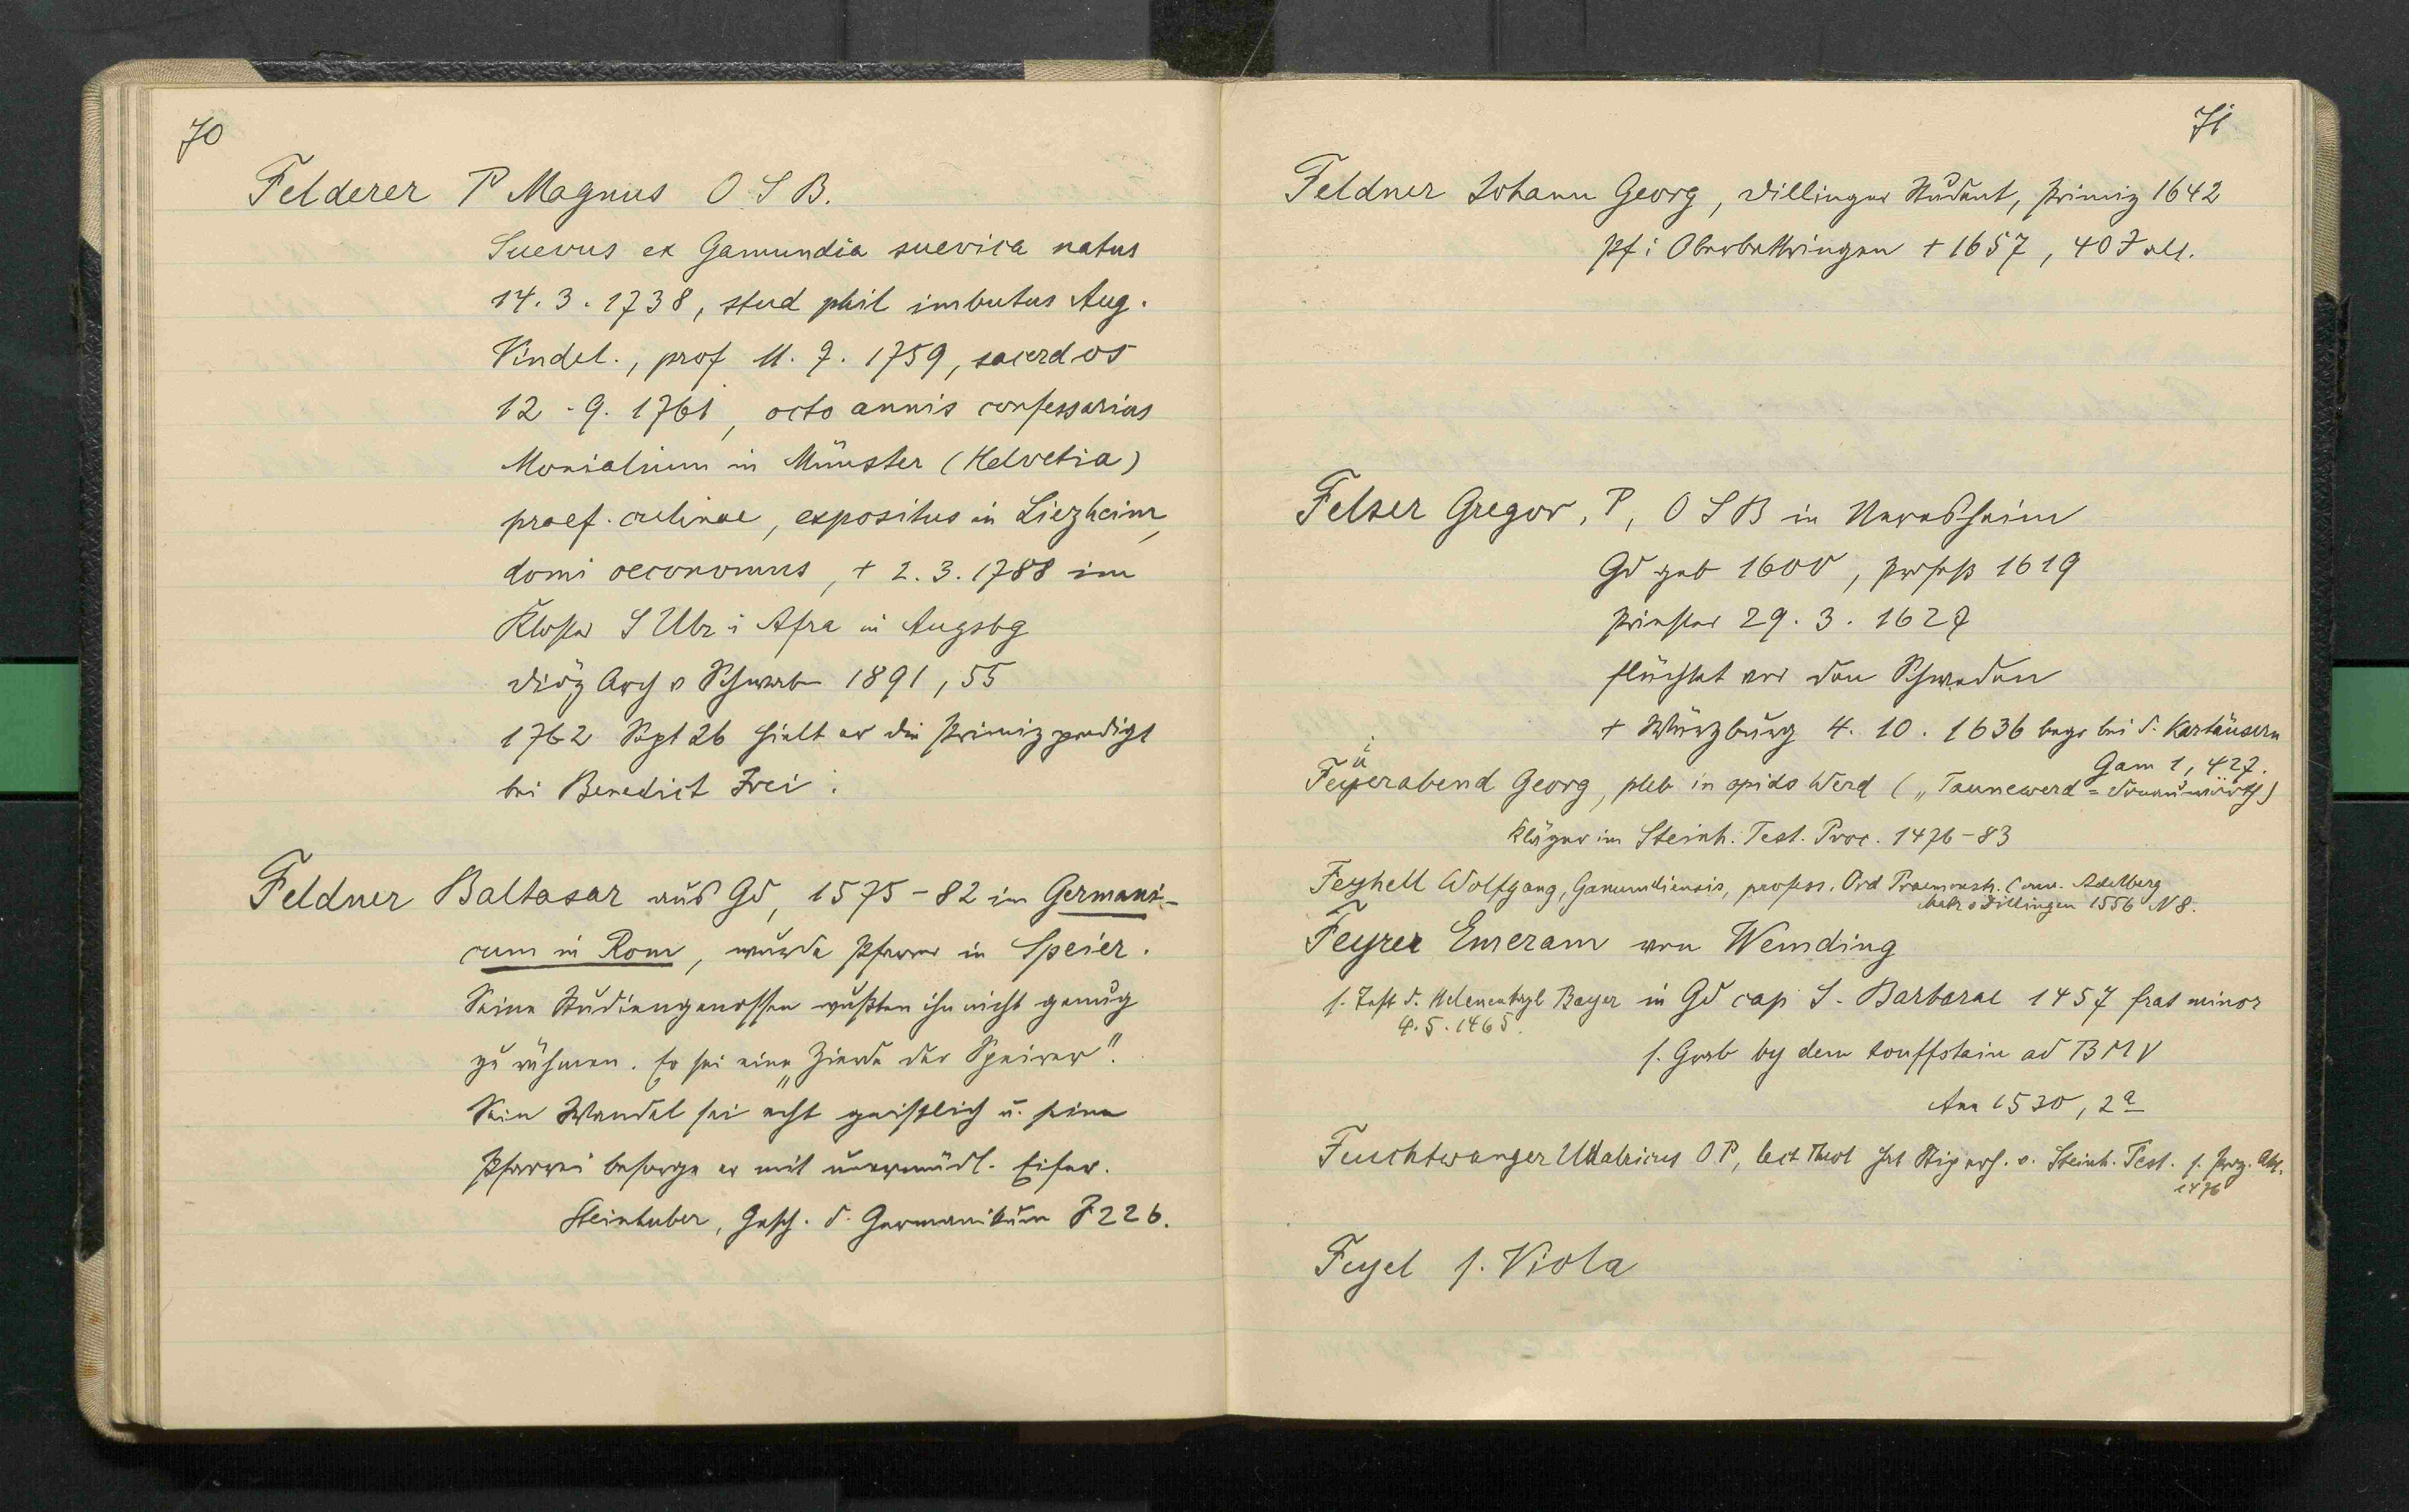 70
Felderer P Magnus O S B.
Suevus ex Gamundia suevica natus
14. 3. 1738, stud phil imbutus Aug.
Vindel., prof 11. 7. 1759, sacerdos
12. 9. 1761, octo annis confessarius
Monialium in Münster (Helvetia)
praef. culinae, expositus in Liezheim,
domi oeconomus, + 2. 3. 1788 im
Kloster S Ulr i Afra in Augsbg
Diöz Arch v Schwab 1891, 55
1762 Sept 26 hielt er die Primizpredigt
bei Benedict Frei.
Feldner Baltasar aus Gd, 1575-82 im Germani-
cum in Rom, wurde Pfarrer in Speier.
Seine Studiengenossen wußten ihn nicht genug
zu rühmen. Er sei eine „Zierde der Speirer".
Sein Wandel sei echt geistlich u. seine
Pfarrei besorge er mit unermüdl. Eifer.
Steinhuber, Gesch. d. Germanikum I 226.
71
Feldner Johann Georg, Dillinger Student, Primiz 1642
Pf i Oberbettringen + 1657, 40 J alt.
Felser Gregor, P, O S B in Neresheim
Gd geb 1600, Profeß 1619
Priester 29. 3. 1627
flüchtet vor den Schweden
+ Würzburg 4. 10. 1636 begr bei d. Kartäusern
Gam 1, 427.
Feyerabend Georg, pleb in opido Werd („Taunewerd = Donauwörth)
Kläger im Steinh. Test. Proc. 1476-83
Feyhell Wolfgang, Gamundiensis, profess. Ord Praemonstr. Conv. Adelberg
Matr v Dillingen 1556 N 8.
Feyrer Emeram von Wemding
s. Test d. Helenenkapl Bayer in Gd cap S. Barbarae 1457 frat minor
4. 5. 1465.
s. Grab by dem touffstain ad B M V
Ann 1530, 2a
Feuchtwanger Udalricus O P, lect Theol hat Stip erh. v. Steinh. Test. s. Proz. Akt.
1476
Feyel s. Viola